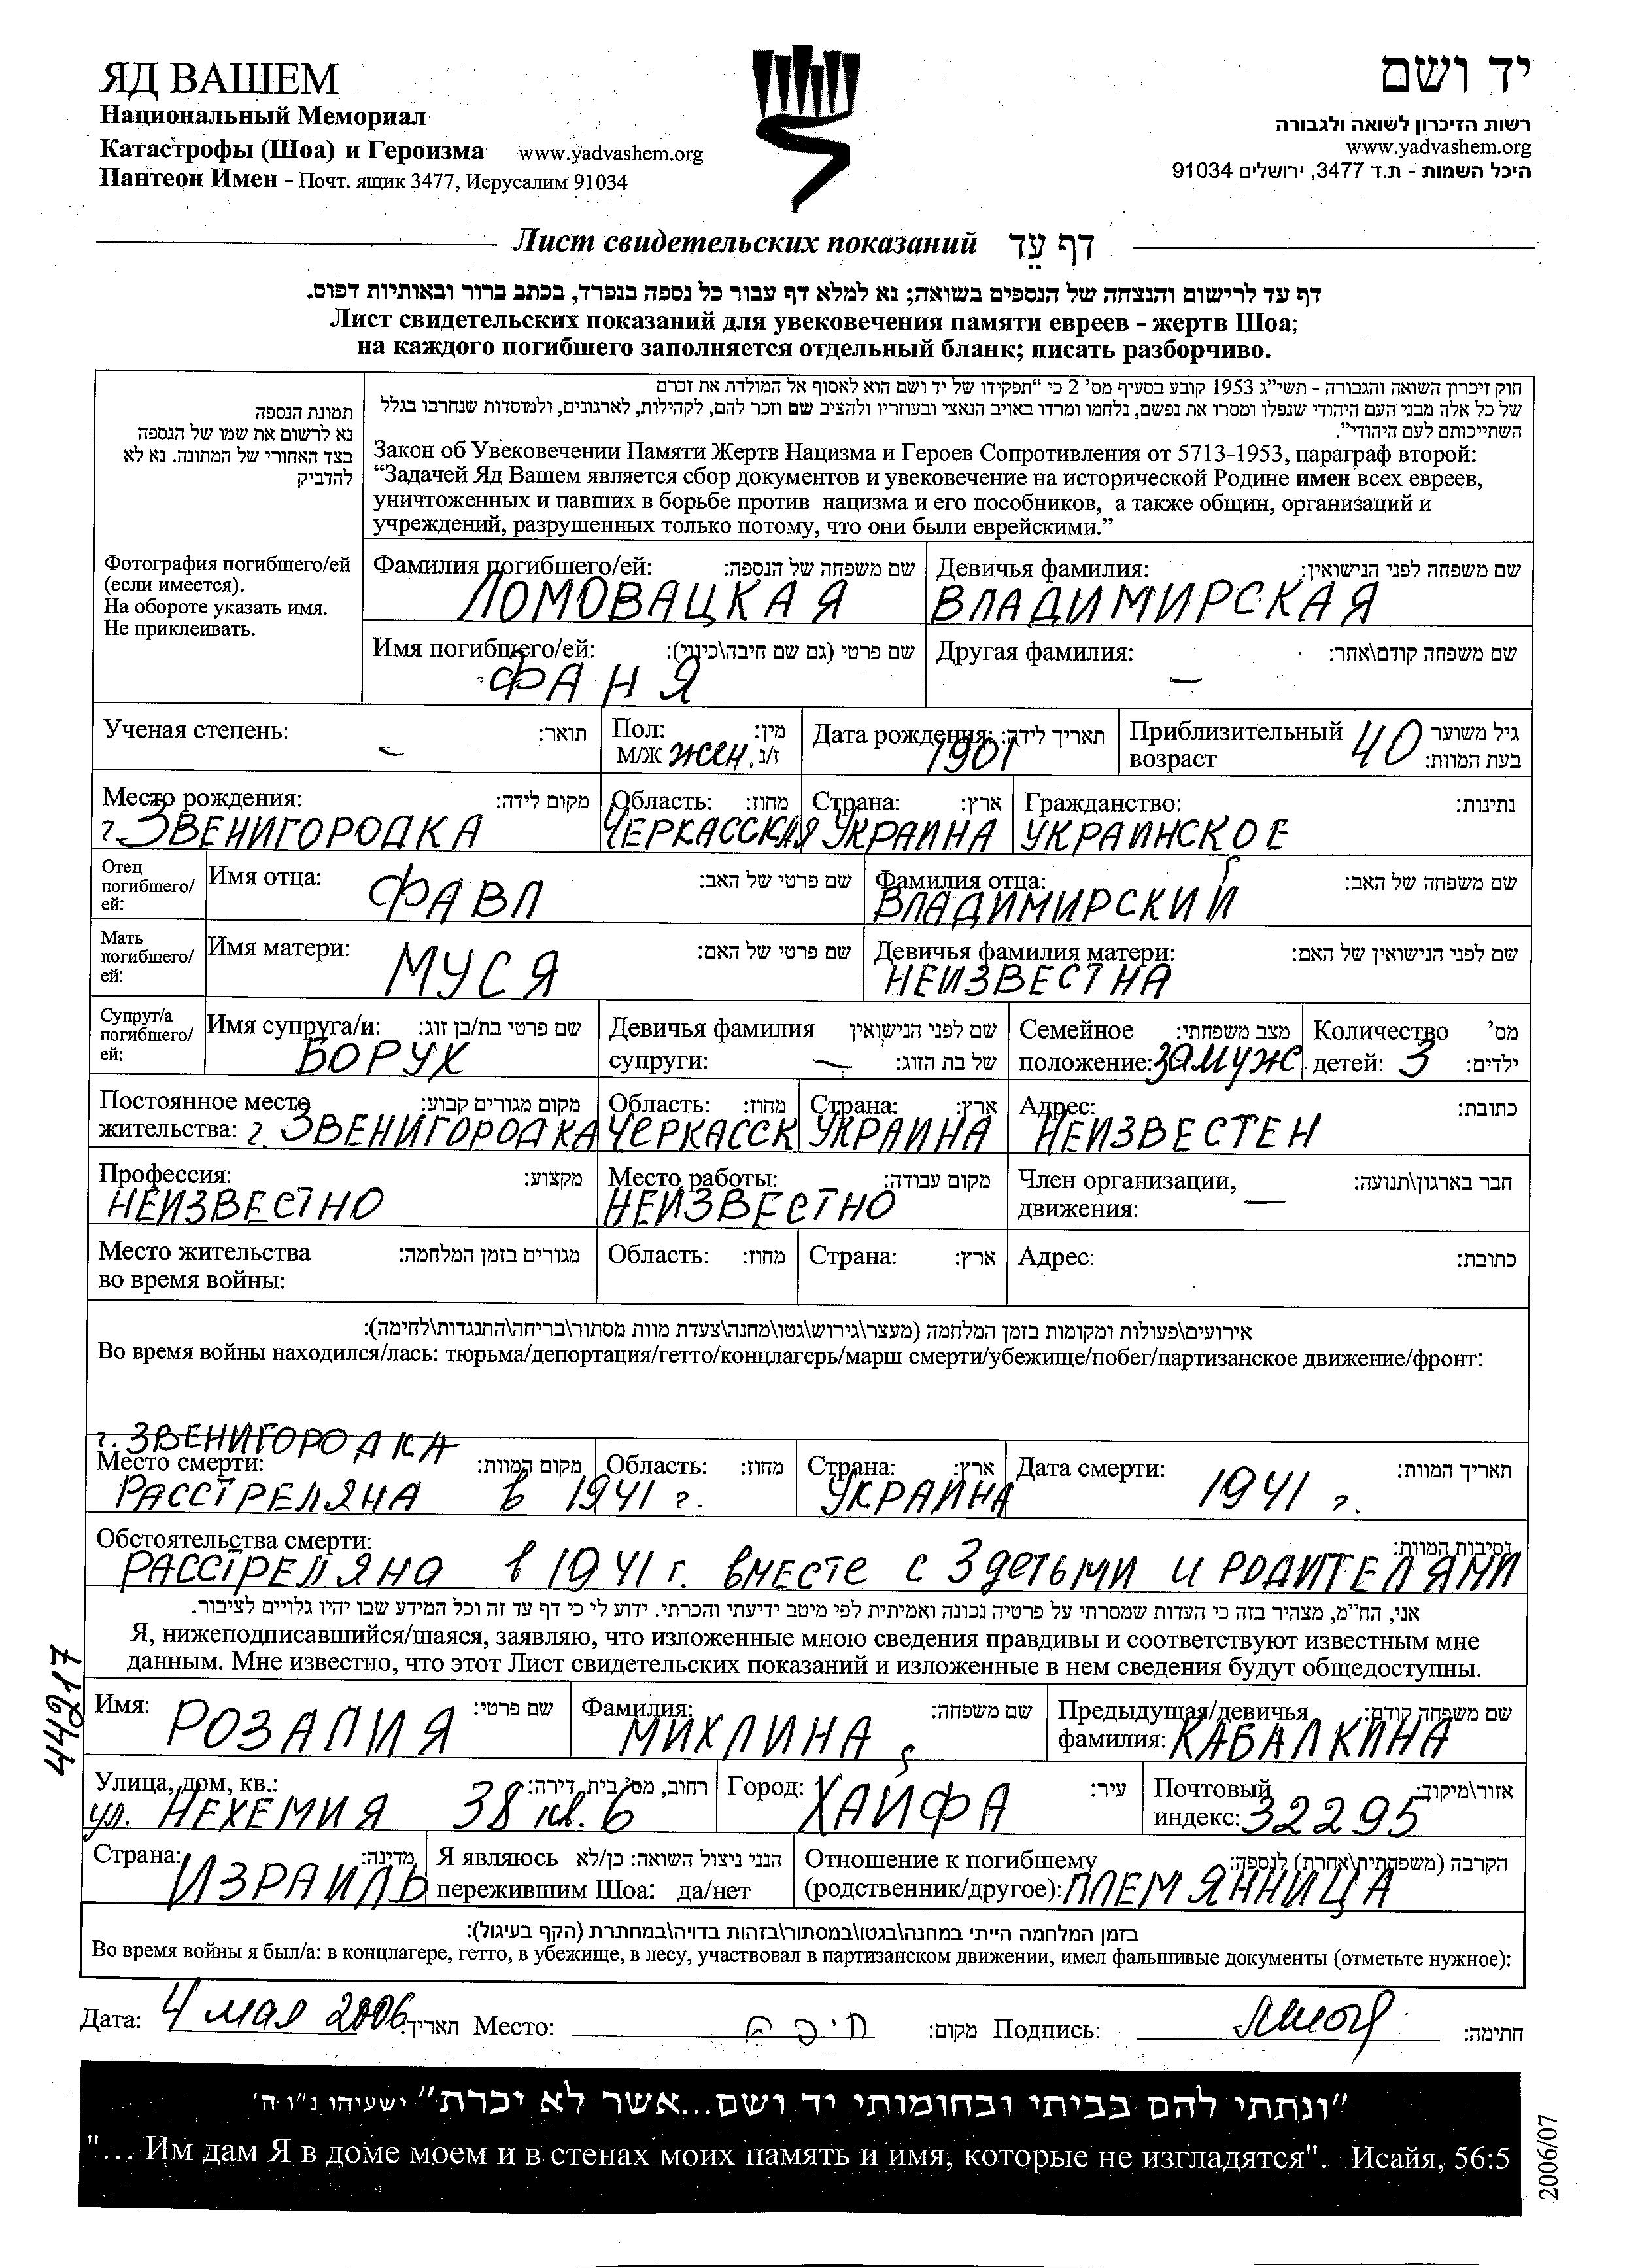 ЯД ВАШЕМ
Национальный Мемориал
Катастрофы (Шоа) и Героизма www.yadvashem.org
Пантеон Имен - Почт. ящик 3477, Иерусалим 91034
יד ושם
רשות הזיכרון לשואה ולגבורה
www.yadvashem.org
היכל השמות - ת.ד 3477, ירושלים 91034
Лист свидетельских показаний דף עֵד
דף עד לרישום והנצחה של הנספים בשואה; נא למלא דף עבור כל נספה בנפרד, בכתב ברור ובאותיות דפוס.
Лист свидетельских показаний для увековечения памяти евреев - жертв Шоа;
на каждого погибшего заполняется отдельный бланк; писать разборчиво.
תמונת הנספה
נא לרשום את שמו של הנספה
בצד האחורי של המתונה. נא לא
להדביק
Фотография погибшего/ей
(если имеется).
На обороте указать имя.
Не приклеивать.
חוק זיכרון השואה והגבורה - תשי״ג 1953 קובע בסעיף מס׳ 2 כי ״תפקידו של יד ושם הוא לאסוף אל המולדת את זכרם
של כל אלה מבני העם היהודי שנפלו ומסרו את נפשם, נלחמו ומרדו באויב הנאצי ובעוזריו ולהציב שם וזכר להם, לקהילות, לארגונים, ולמוסדות שנחרבו בגלל
השתייכותם לעם היהודי״.
Закон об Увековечении Памяти Жертв Нацизма и Героев Сопротивления от 5713-1953, параграф второй:
“Задачей Яд Вашем является сбор документов и увековечение на исторической Родине имен всех евреев,
уничтоженных и павших в борьбе против нацизма и его пособников, а также общин, организаций и
учреждений, разрушенных только потому, что они были еврейскими.”
Фамилия погибшего/ей: שם משפחה של הנספה:
ЛОМОВАЦКАЯ
Девичья фамилия: שם משפחה לפני הנישואין:
ВЛАДИМИРСКАЯ
Имя погибшего/ей: שם פרטי (גם שם חיבה\כינוי):
ФАНЯ
Другая фамилия: שם משפחה קודם\אחר:
–
Ученая степень: תואר:
–
Пол: מין:
М/Ж жен. ז/נ
Дата рождения: תאריך לידה:
1901
Приблизительный גיל משוער
возраст 40 בעת המוות:
Место рождения: מקום לידה:
г. ЗВЕНИГОРОДКА
Область: מחוז:
ЧЕРКАССКАЯ
Страна: ארץ:
УКРАИНА
Гражданство: נתינות:
УКРАИНСКОЕ
Отец
погибшего/
ей:
Имя отца: ФАВЛ שם פרטי של האב:
Фамилия отца: שם משפחה של האב:
ВЛАДИМИРСКИЙ
Мать
погибшего/
ей:
Имя матери: МУСЯ שם פרטי של האם:
Девичья фамилия матери: שם לפני הנישואין של האם:
НЕИЗВЕСТНА
Супруг/а
погибшего/
ей:
Имя супруга/и: שם פרטי בת/בן זוג:
БОРУХ
Девичья фамилия שם לפני הנישואין
супруги: – של בת הזוג:
Семейное מצב משפחתי:
положение: ЗАМУЖ.
Количество מס׳
детей: 3 ילדים:
Постоянное место מקום מגורים קבוע:
жительства: г. ЗВЕНИГОРОДКА
Область: מחוז:
ЧЕРКАССК
Страна: ארץ:
УКРАИНА
Адрес: כתובת:
НЕИЗВЕСТЕН
Профессия: מקצוע:
НЕИЗВЕСТНО
Место работы: מקום עבודה:
НЕИЗВЕСТНО
Член организации, – חבר בארגון\תנועה:
движения:
Место жительства מגורים בזמן המלחמה:
во время войны:
Область: מחוז:
Страна: ארץ:
Адрес: כתובת:
אירועים\פעולות ומקומות בזמן המלחמה (מעצר\גירוש\גטו\מחנה\צעדת מוות מסתור\בריחה\התנגדות\לחימה):
Во время войны находился/лась: тюрьма/депортация/гетто/концлагерь/марш смерти/убежище/побег/партизанское движение/фронт:
г. ЗВЕНИГОРОДКА
Место смерти: מקום המוות:
РАССТРЕЛЯНА в 1941 г.
Область: מחוז:
Страна: ארץ:
УКРАИНА
Дата смерти: תאריך המוות:
1941 г.
Обстоятельства смерти: נסיבות המוות:
РАССТРЕЛЯНА в 1941 г. вместе с 3 детьми и РОДИТЕЛЯМИ
אני, הח״מ, מצהיר בזה כי העדות שמסרתי על פרטיה נכונה ואמיתית לפי מיטב ידיעתי והכרתי. ידוע לי כי דף עד זה וכל המידע שבו יהיו גלויים לציבור.
Я, нижеподписавшийся/шаяся, заявляю, что изложенные мною сведения правдивы и соответствуют известным мне
данным. Мне известно, что этот Лист свидетельских показаний и изложенные в нем сведения будут общедоступны.
44217
Имя: РОЗАЛИЯ שם פרטי:
Фамилия: שם משפחה:
МИХЛИНА
Предыдущая/девичья שם משפחה קודם:
фамилия: КАБАЛКИНА
Улица, дом, кв.: רחוב, מס׳ בית, דירה:
ул. НЕХЕМИЯ 38 кв. 6
Город: ХАЙФА עיר:
Почтовый אזור\מיקוד:
индекс: 32295
Страна: מדינה:
ИЗРАИЛЬ
Я являюсь הנני ניצול השואה: כן/לא
пережившим Шоа: да/нет
Отношение к погибшему הקרבה (משפחתית\אחרת) לנספה:
(родственник/другое): ПЛЕМЯННИЦА
בזמן המלחמה הייתי במחנה\בגטו\במסתור\בזהות בדויה\במחתרת (הקף בעיגול):
Во время войны я был/а: в концлагере, гетто, в убежище, в лесу, участвовал в партизанском движении, имел фальшивые документы (отметьте нужное):
Дата: 4 мая 2006 תאריך: Место: חיפה מקום: Подпись: חתימה:
״ונתתי להם בביתי ובחומותי יד ושם...אשר לא יכרת״ ישעיהו נ״ו ה׳
"... Им дам Я в доме моем и в стенах моих память и имя, которые не изгладятся". Исайя, 56:5
2006/07